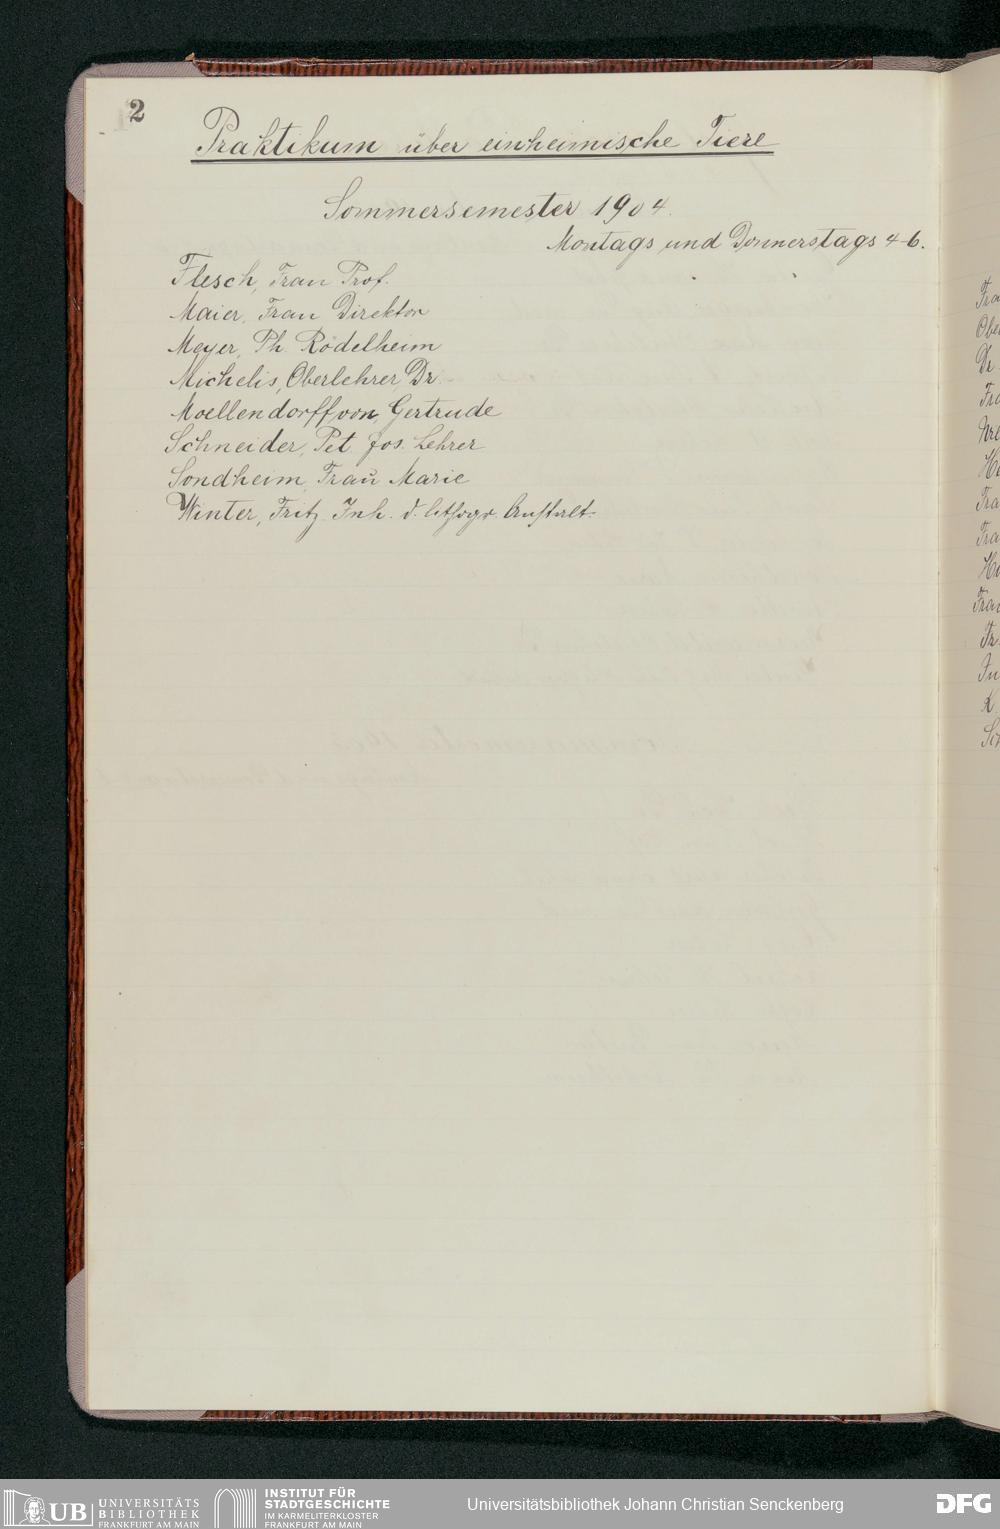 2
Praktikum über einheimische Tiere
Sommersemester 1904.
Montags und Donnerstags 4-6.
Flesch, Frau Prof.
Maier, Frau Direktor
Meyer, Ph. Rödelheim
Michelis, Oberlehrer, Dr.
Moellendorff von, Gertrude
Schneider, Pet. Jos. Lehrer
Sondheim, Frau Marie
Winter, Fritz. Inh. d. lithogr. Anstalt.
Fra
Ober
Dr
Fra
Fra
Fra
Frau
Fr.
UB UNIVERSITÄTS
BIBLIOTHEK
FRANKFURT AM MAIN
INSTITUT FÜR
STADTGESCHICHTE
IM KARMELITERKLOSTER
FRANKFURT AM MAIN
Universitätsbibliothek Johann Christian Senckenberg
DFG